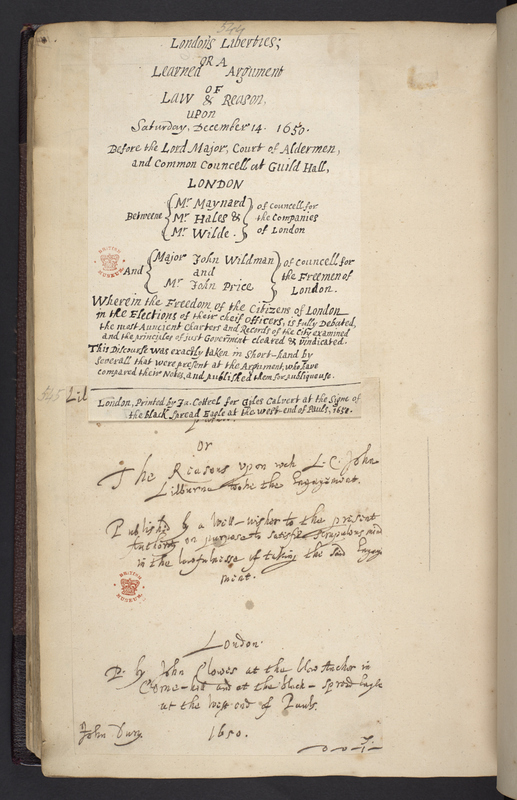 549
London's Liberties;
OR A
Learned Argument
OF
Law & Reason,
UPON
Saturday, December 14. 1650.
Before the Lord Major, Court of Aldermen,
and Common Councell at Guild Hall,
LONDON
Betweene { Mr Maynard Mr Hales & Mr Wilde. } of councell for the Companies of London
And { Major John Wildman and Mr John Price } of councell for the Freemen of London.
Wherein the Freedom of the Citizens of London
in the Elections of their cheif officers, is fully Debated,
the most Auncient Charters and Records of the City examined
and the principles of just Goverment cleared & vindicated.
This Discourse was exactly taken in Short-hand by
severall that were present at the Argument, who have
compared their Notes, and published them for publique use.
London, Printed by Ja. Cottrel for Gyles Calvert at the Signe of
the black spread Eagle at the west-end of Pauls, 1650.
Lil
or
The Reasons upon wch L. C. John
Lilburne tooke the Engagement.
Published by a Well-wisher to the present
Authority on purpose to satisfie scrupulous mind
in the lawfulnesse of taking the said Engag
ment.
London.
P. by John Clowes at the blew Anchor in
and at the black-spread Eagle
at the west end of Pauls.
John Dury
1650.
BRITISH MUSEUM
BRITISH MUSEUM